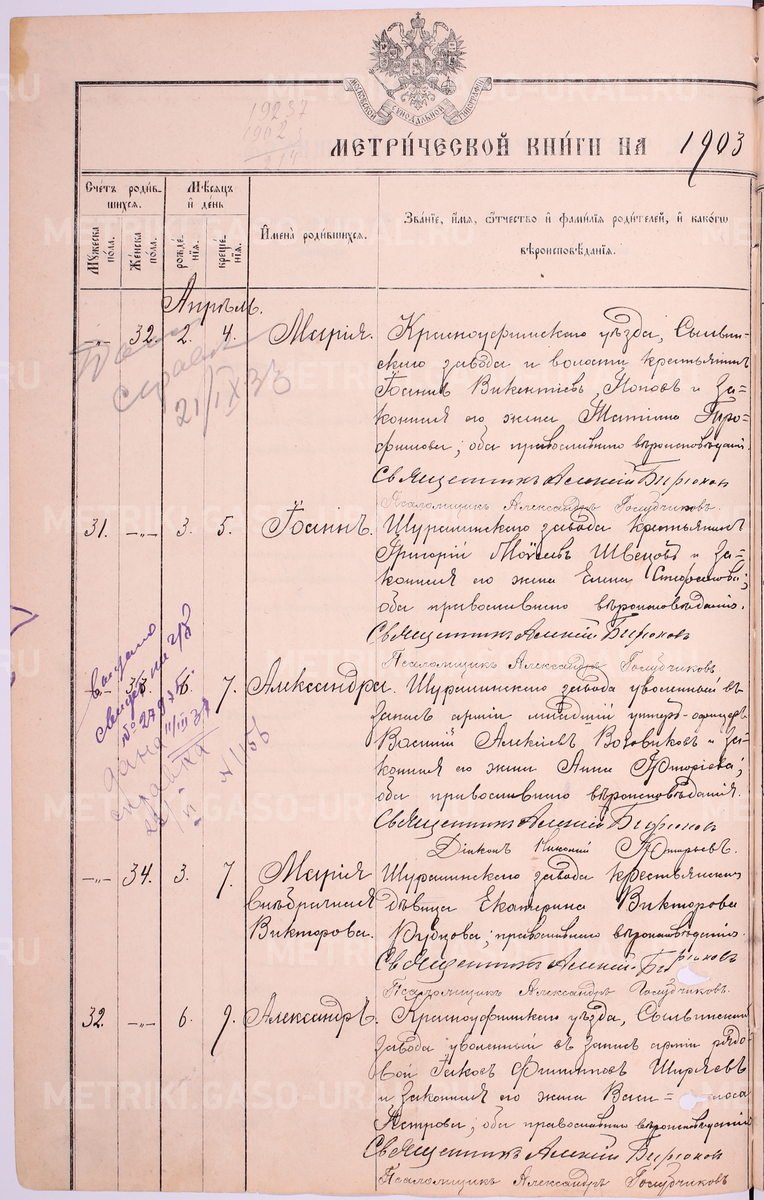 МОСКОВСКОЙ СѴНОДАЛЬНОЙ ТИПОГРАФІИ
19237
МЕТРИ́ЧЕСКОЙ КНИ́ГИ НА 1903
Счетъ роди́в-
шихся.
Мужеска по́ла.
Женска по́ла.
Мѣсяцъ и день
рожде́нїѧ.
креще́нїѧ.
Имена̀ роди́вшихся.
Зва́нїе, и́мя, о́тчество и фами́лїя роди́телей, и како́гѡ
вѣроисповѣ́данїѧ.
Апрѣль.
—„— 32. 2. 4. Марія. Красноуфимскаго уѣзда, Сылвин-
скаго завода и волости крестьянинъ
Іоаннъ Викентіевъ Поповъ и за-
конная его жена Татіана Тро-
фимова; оба православнаго вѣроисповѣданія.
Священникъ Алексій Бирюковъ
Псаломщикъ Александръ Голубчиковъ.
21/IX 37
31. —„— 3. 5. Іоаннъ. Шуралинскаго завода крестьянинъ
Григорій Моѵсеевъ Швецовъ и за-
конная его жена Елена Стефанова;
оба православнаго вѣроисповѣданія.
Священникъ Алексій Бирюковъ
Псаломщикъ Александръ Голубчиковъ
—„— 33. 6. 7. Александра. Шуралинскаго завода уволенный въ
запасъ арміи младшій унтеръ-офицеръ
Василій Алексіевъ Возовиковъ и за-
конная его жена Анна Григоріева;
оба православнаго вѣроисповѣданія.
Священникъ Алексій Бирюковъ
Діаконъ Николай Григорьевъ.
выдано
свидет.
№ 279
дана
справка
—„— 34. 3. 7. Марія Шуралинскаго завода крестьянская
внѣбрачная дѣвица Екатерина Викторова
Викторова. Рубцова; православнаго вѣроисповѣданія.
Священникъ Алексій Бирюковъ
Псаломщикъ Александръ Голубчиковъ.
32. —„— 6. 9. Александръ. Красноуфимскаго уѣзда, Сылвинскаго
завода уволенный въ запасъ арміи рядо-
вой Іаковъ Филипповъ Ширяевъ
и законная его жена Васи-
Петрова; оба православнаго вѣроисповѣданія
Священникъ Алексій Бирюковъ
Псаломщикъ Александръ Голубчиковъ
METRIKI.GASO-URAL.RU